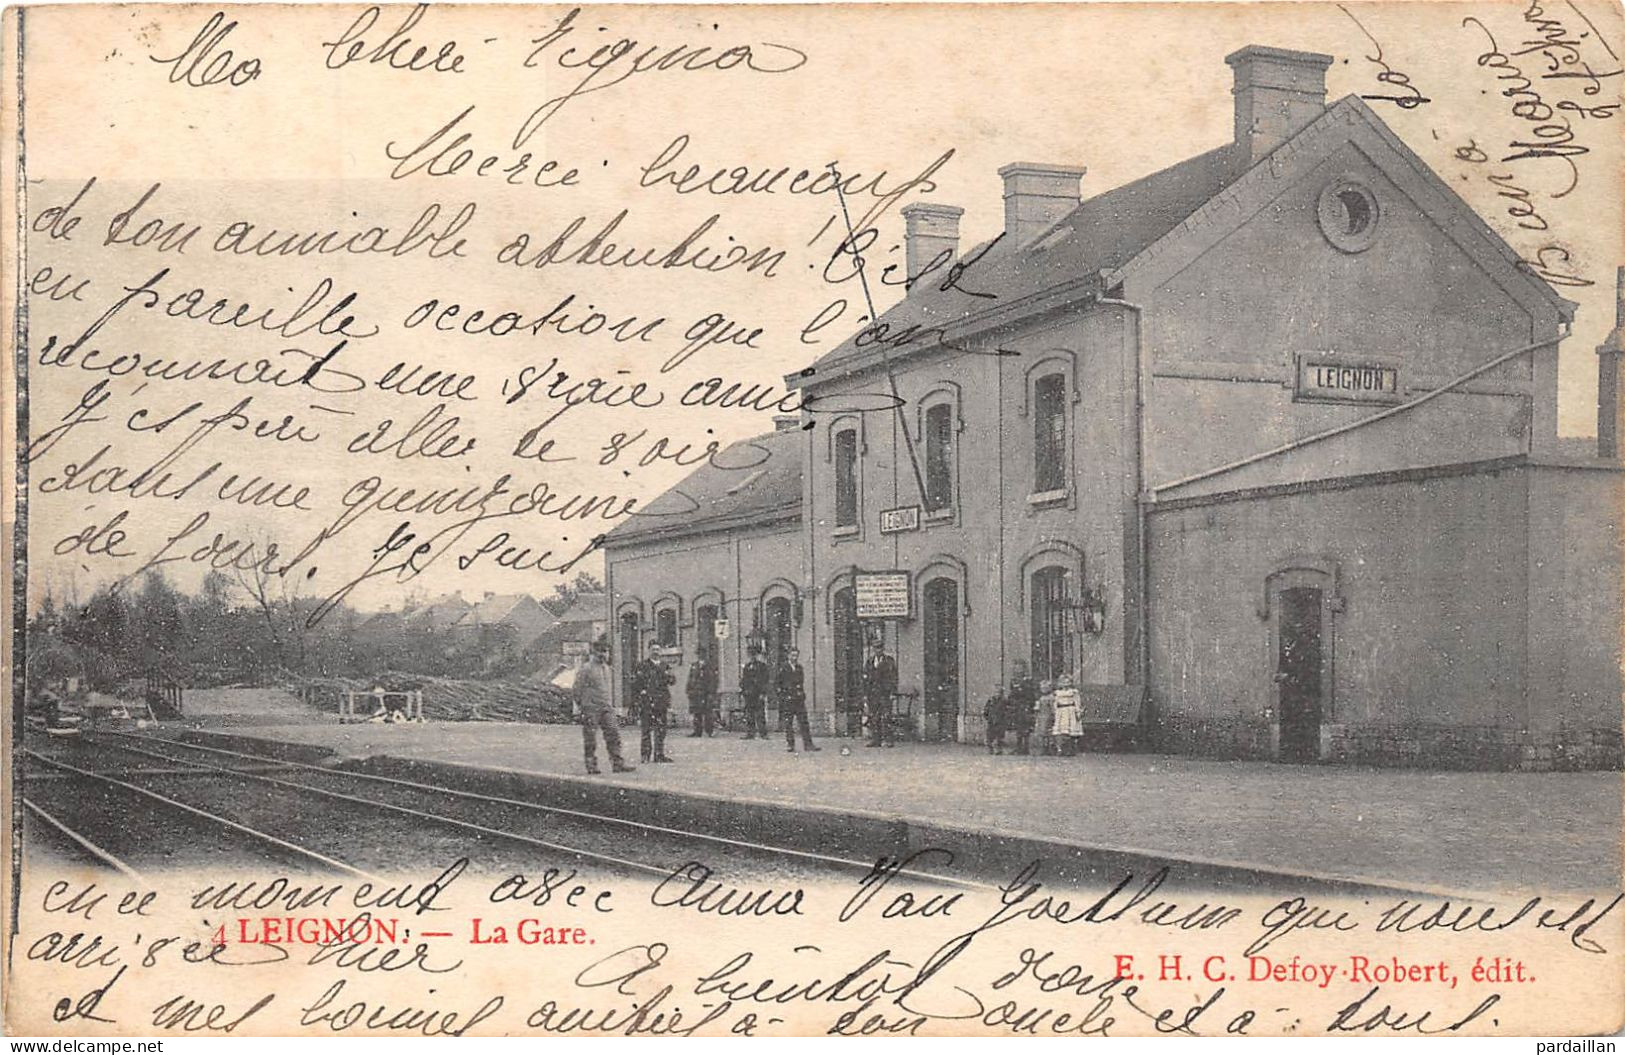 Ma Chère Rigina
Merci beaucoup
de ton aimable attention! C'est
en pareille occation que l'on
reconnait une vraie amie
J'espère aller te voir
dans une quinzaine
de jours. Je suis
en ce moment avec Anna Van Goethum qui nous est
arrivée hier A bientôt
et mes bonnes amitiés à ton oncle et à tous.
bien à toi
Marie
LEIGNON
LEIGNON
7
4 LEIGNON. — La Gare.
E. H. C. Defoy-Robert, édit.
pardaillan